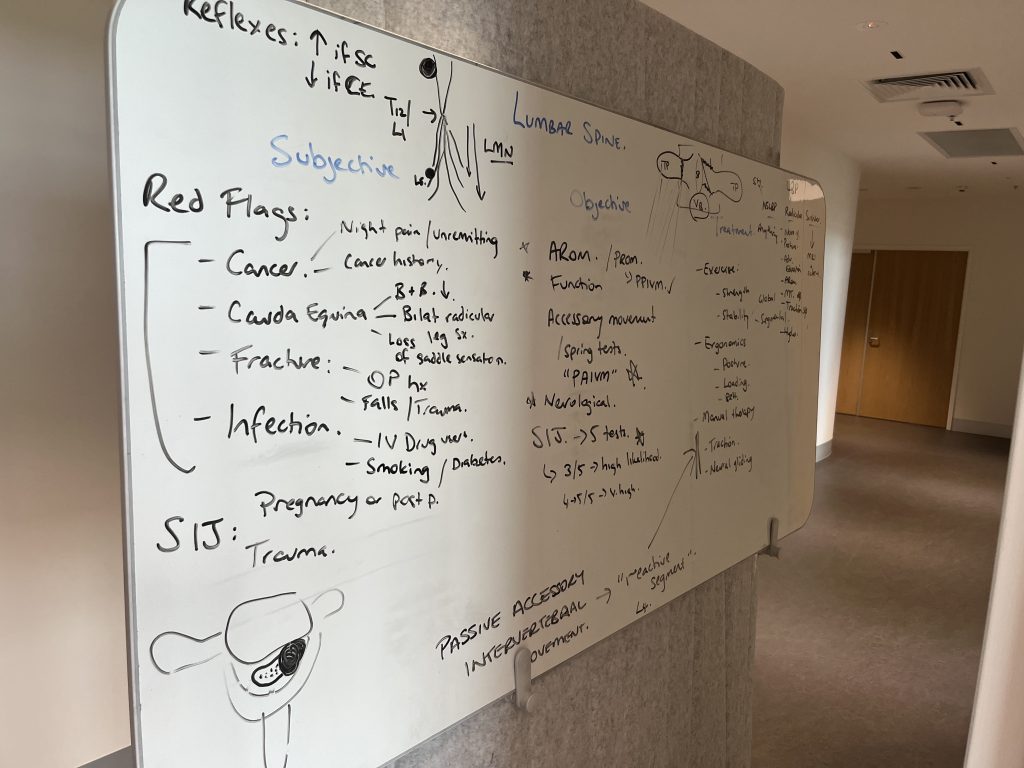 Reflexes: ↑ if SC
↓ if CE.
T12/
L1
LMN
LUMBAR SPINE.
Subjective
Red Flags:
- Cancer. - Night pain / unremitting
- Cancer history.
- Cauda Equina - B + B. ↓
- Bilat radicular
leg Sx.
- Loss
of saddle sensation.
- Fracture: - OP hx
- Falls / Trauma.
- Infection. - IV Drug users.
- Smoking / Diabetes.
SIJ: Pregnancy or post p.
Trauma.
Objective
AROM. / PROM.
Function PPIVM. ✓
Accessory movement
/ spring tests.
"PAIVM"
Neurological.
SIJ. → 5 tests.
↳ 3/5 → high likelihood.
4→5/5 → v. high.
TP
TP
VB
Treatment.
- Exercise.
- Strength
- Stability
Global
Segmental
- Ergonomics
- Posture.
- Loading.
- Manual therapy
- Traction.
- Neural gliding
PASSIVE ACCESSORY
INTERVERTEBRAL
MOVEMENT.
→ "reactive
segment".
L4.